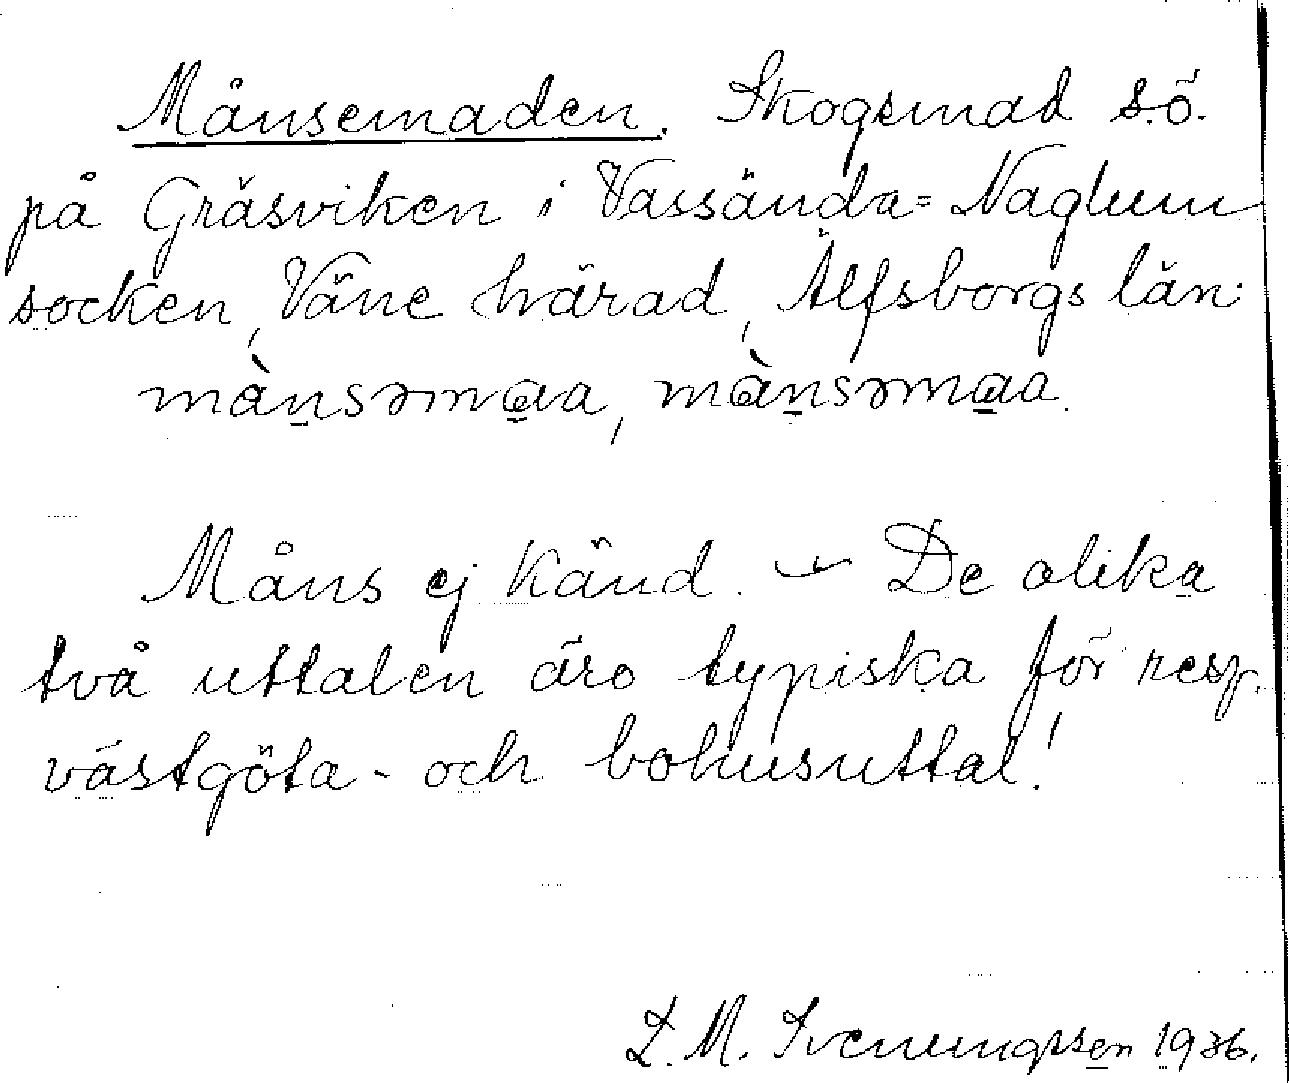 Månsemaden. Skogsmad sö.
på Gräsviken i Vassända=Naglum
socken, Väne härad, Älfsborgs län:
mànsəmaa, mànsəmaa.
Måns ej känd. – De olika
två uttalen äro typiska för resp.
västgöta- och bohusuttal!
L. M. Svenungssen 1936.